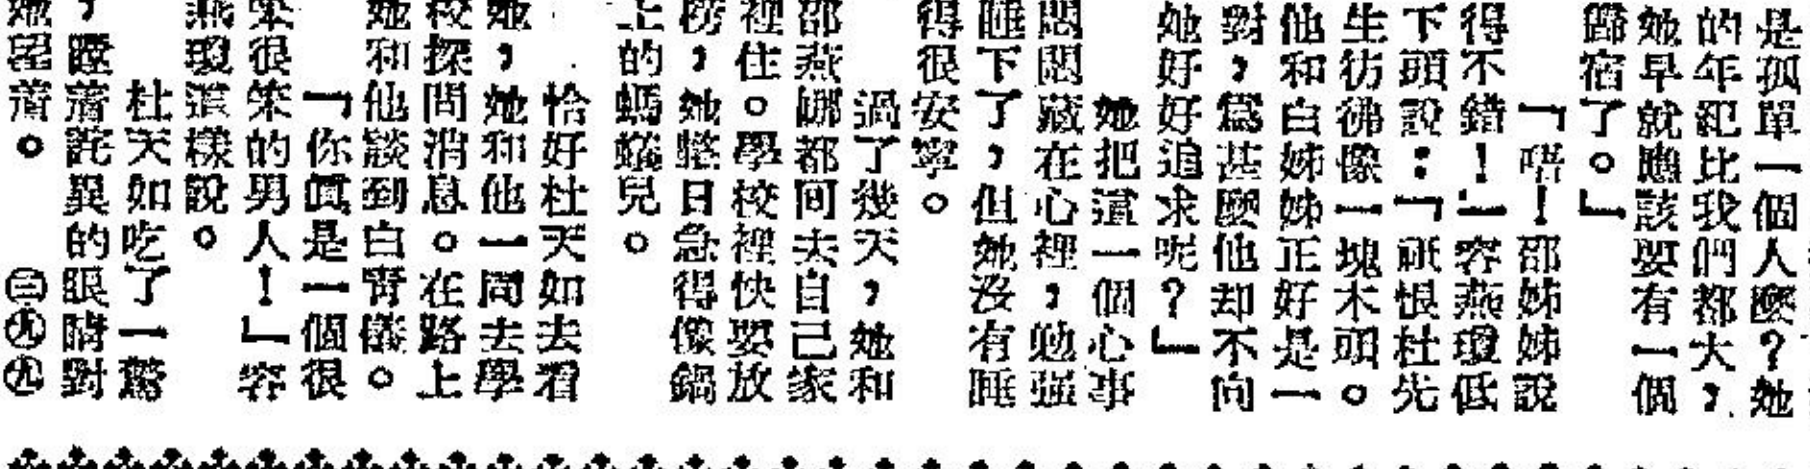 是孤單一個人麼？她
的年紀比我們都大，
她早就應該要有一個
歸宿了。」
「唔！邵姊姊說
得不錯！」容燕瓊低
下頭說：「祇恨杜先
生彷彿像一塊木頭。
他和白姊姊正好是一
對，爲甚麼他却不向
她好好追求呢？」
她把這一個心事
悶悶藏在心裡，勉强
睡下了，但她沒有睡
得很安寧。
過了幾天，她和
邵燕娜都囘去自己家
裡住。學校裡快要放
榜，她整日急得像鍋
上的螞蟻兒。
恰好杜天如去看
她，她和他一同去學
校探問消息。在路上
她和他談到白霄儀。
「你眞是一個很
笨很笨的男人！」容
燕瓊這樣說。
杜天如吃了一驚
，瞪着詫異的眼睛對
她望着。
㊂㊈㊈